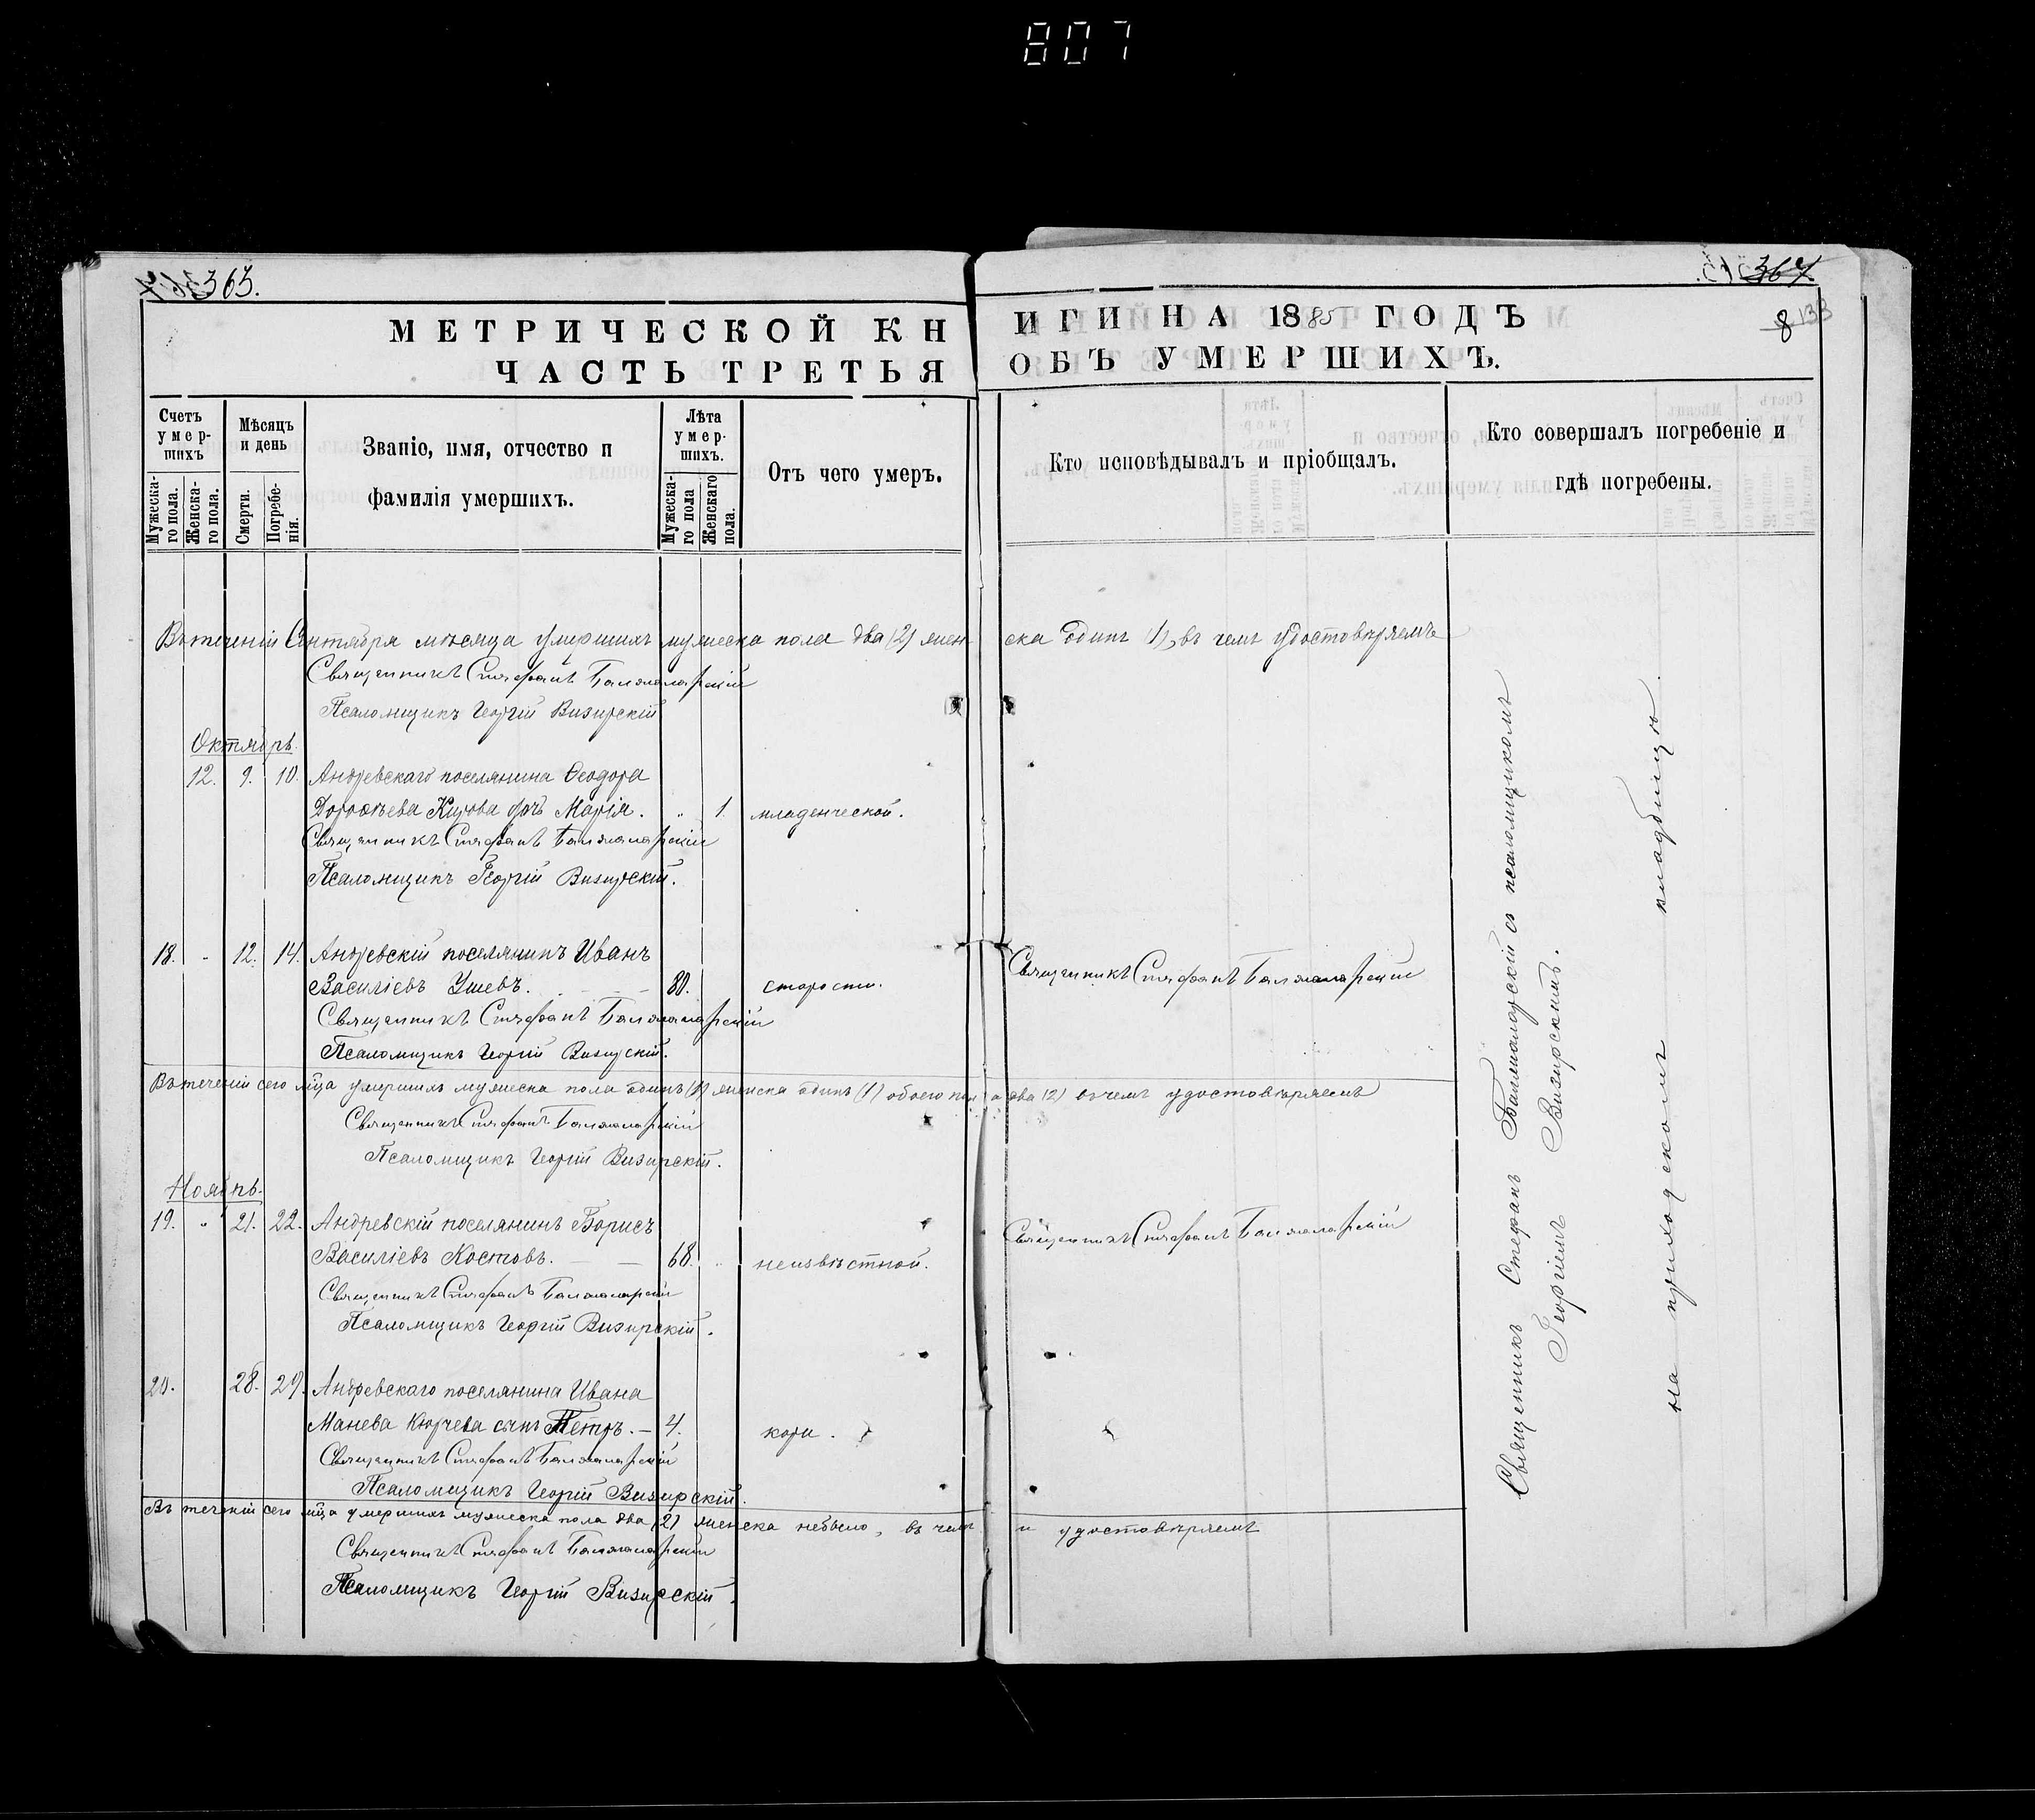 807
363.
364
МЕТРИЧЕСКОЙ КНИГИ НА 1885 ГОДЪ
8
133
ЧАСТЬ ТРЕТЬЯ ОБЪ УМЕРШИХЪ.
Счетъ умер-шихъ
Мужеска-го пола.
Женска-го пола.
Мѣсяцъ и день
Смерти.
Погребе-нія.
Званіе, имя, отчество и
фамилія умершихъ.
Лѣта умер-шихъ.
Мужеска-го пола
Женскаго пола.
Отъ чего умеръ.
Кто исповѣдывалъ и пріобщалъ.
Кто совершалъ погребеніе и
гдѣ погребены.
Въ теченіи Сентября мѣсяца умершихъ мужеска пола два (2) женска одинъ (1), въ чемъ удостовѣряемъ
Священникъ Стефанъ
Псаломщикъ Георгій Визирскій
Октябрь.
12. 9. 10. Андревскаго поселянина Ѳеодора
Дороѳѣева Кирова дочь Марія. „ 1. младенческой.
Священникъ Стефанъ
Псаломщикъ Георгій Визирскій.
18. - 12. 14. Андревскій поселянинъ Иванъ
Василіевъ Ушевъ. 80. старости.
Священникъ Стефанъ
Священникъ Стефанъ
Псаломщикъ Георгій Визирскій.
Въ теченіи сего мѣца умершихъ мужеска пола одинъ (1) женска одинъ (1) обоего пола два (2) въ чемъ удостовѣряемъ
Священникъ Стефанъ
Псаломщикъ Георгій Визирскій.
Ноябрь.
19. „ 21. 22. Андревскій поселянинъ Борисъ
Василіевъ Костовъ. 68. неизвѣстной.
Священникъ Стефанъ
Священникъ Стефанъ
Псаломщикъ Георгій Визирскій.
20. 28. 29. Андревскаго поселянина Ивана
Манева Кюрчева сынъ Петръ. 4. кори.
Священникъ Стефанъ
Псаломщикъ Георгій Визирскій.
Въ теченіи сего мѣца умершихъ мужеска пола два (2) женска небыло, въ чемъ и удостовѣряемъ
Священникъ Стефанъ
Псаломщикъ Георгій Визирскій.
Священникъ Стефанъ съ псаломщикомъ
Георгіемъ Визирскимъ.
на приходскомъ кладбищѣ.